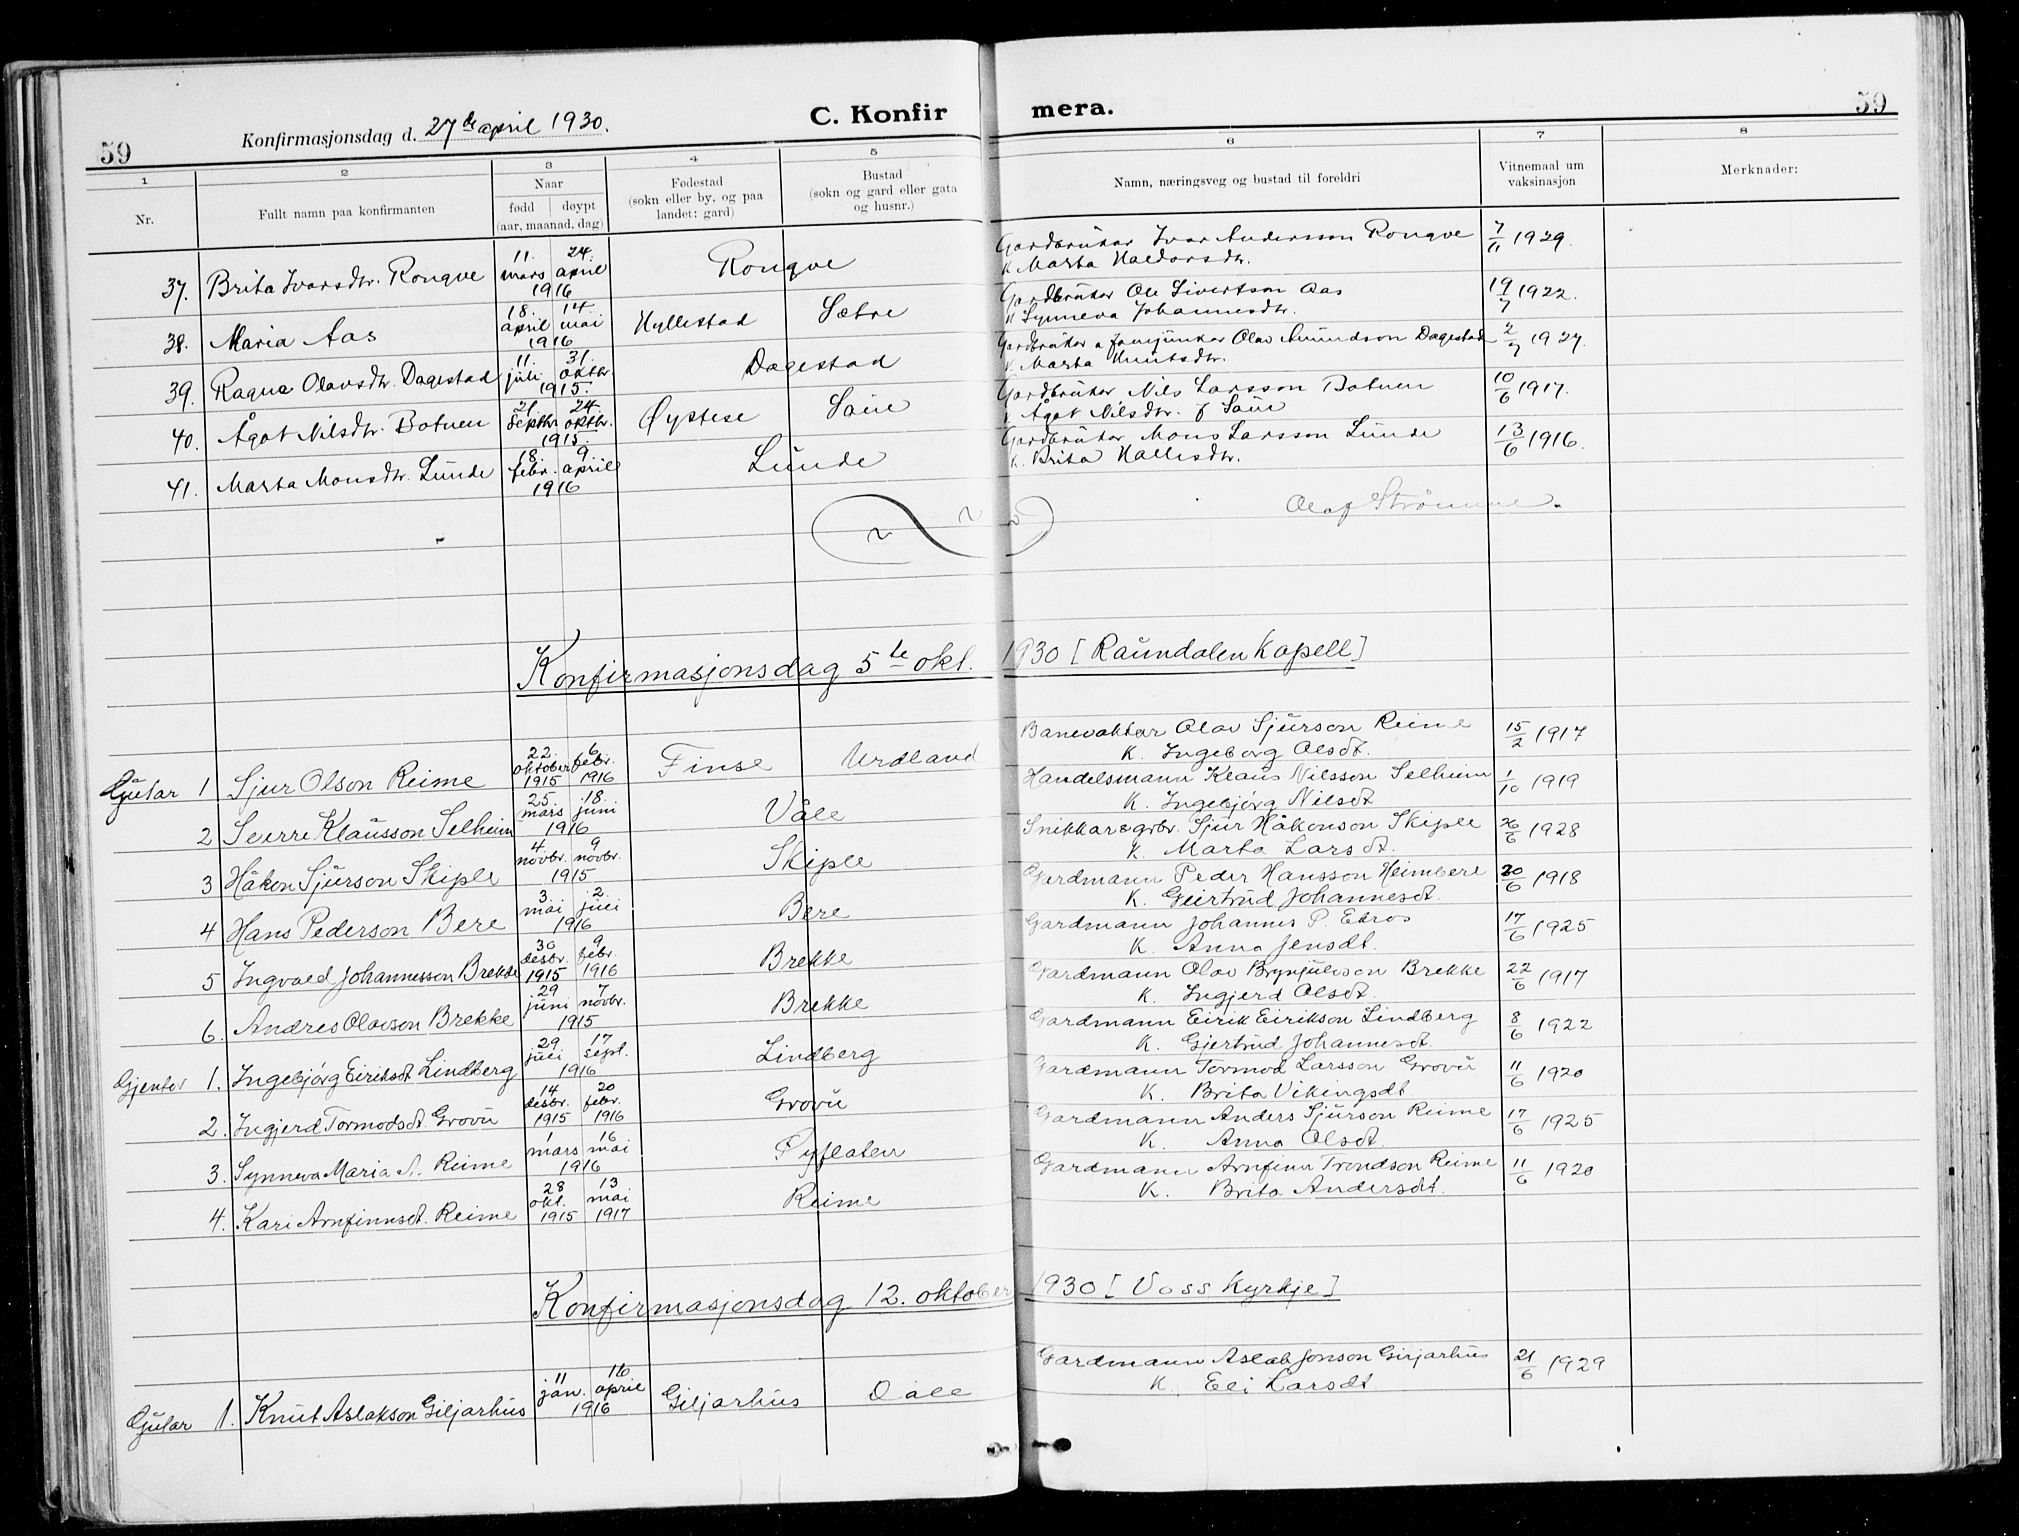 59
Konfirmasjonsdag d. 27de april 1930.
C. Konfirmera.
59
1 2 3 4 5 6 7 8
Nr.
Fullt namn paa konfirmanten
Naar
fødd døypt
(aar, maanad, dag)
Fødestad
(sokn eller by, og paa
landet: gard)
Bustad
(sokn og gard eller gata
og husnr.)
Namn, næringsveg og bustad til foreldri
Vitnemaal um
vaksinasjon
Merknader:
37. Brita Ivarsdtr. Rongve 11. mars 24. april 1916 Rongve Gardbrukar Ivar Anderson Rongve 7/11 1929.
K Marta Haldorsdtr.
38. Maria Aas 18. april 14. mai 1916 Hyllestad Sætre Gardbrukar Ole Sivertson Aas 19/7 1922.
K Synneva Johannesdtr.
39. Ragna Olavsdtr. Dagestad 11. juli 31. oktbr. 1915. Dagestad Gardbrukar a fanejunkar Olav Amundson Dagestad 2/7 1927.
K. Marta Knutsdtr.
40. Ågot Nilsdtr. Botnen 21. septbr 24. oktbr. 1915. Øystese Saue Gardbrukar Nils Larsson Botnen 10/6 1917.
K Ågot Nilsdtr. f Saue
41. Marta Monsdtr. Lunde 18. febr. 9. april 1916 Lunde Gardbrukar Mons Larsson Lunde 13/6 1916.
K. Brita Hallesdtr.
Olaf Strömme.
Konfirmasjonsdag 5te okt. 1930 [Raundalen Kapell]
Gutar 1 Sjur Olson Reime 22. oktober 1915 6. febr. 1916 Finse Urdland Banevaktar Olav Sjurson Reime 15/2 1917
K. Ingeborg Olsdt.
2 Sverre Klausson Selheim 25. mars 18. juni 1916 Våle Handelsmann Klaus Nilsson Selheim 1/10 1919
K. Ingebjörg Nilsdt
3 Håkon Sjurson Skiple 4. novbr. 9 novbr. 1915 Skiple Snikkar & grbr. Sjur Håkonson Skiple 26/6 1928
K. Marta Larsdt.
4 Hans Pederson Bere 3 mai 2. juli 1916 Bere Gardmann Peder Hansson Heimbere 20/6 1918
K. Geirtrud Johannesdt.
5 Ingvald Johannesson Brekke 30 desbr. 1915 9 febr. 1916 Brekke Gardmann Johannes P. Edros 17/6 1925
K. Anna Jensdt.
6. Andres Olavson Brekke 29 juni 7 novbr. 1915 Brekke Gardmann Olav Brynjulvson Brekke 22/6 1917
K. Ingjerd Olsdt.
Gjentor 1. Ingebjörg Eiriksdt Lindberg 29 juli 17 sept. 1916 Lindberg Gardmann Eirik Eirikson Lindberg 8/6 1922
K. Gjertrud Johannesdt.
2. Ingjerd Tormodsdt Grovu 14 desbr. 1915 20 febr. 1916 Grovu Gardmann Tormod Larsson Grovu 11/6 1920
K. Brita Vikingsdt
3. Synneva Maria A. Reime 1 mars 16 mai 1916 Öyflaten Gardmann Anders Sjurson Reime 17/6 1925
K. Anna Olsdt.
4. Kari Arnfinnsdt. Reime 28 okt. 1915 13 mai 1917 Reime Gardmann Arnfinn Trondson Reime 11/6 1920
K. Brita Andersdt.
Konfirmasjonsdag 12. oktober 1930 [Voss Kyrkje]
Gutar 1. Knut Aslakson Giljarhus 11 jan. 16 april 1916 Giljarhus Dale Gardmann Aslak Jonson Giljarhus 21/6 1929
K. Eli Larsdt